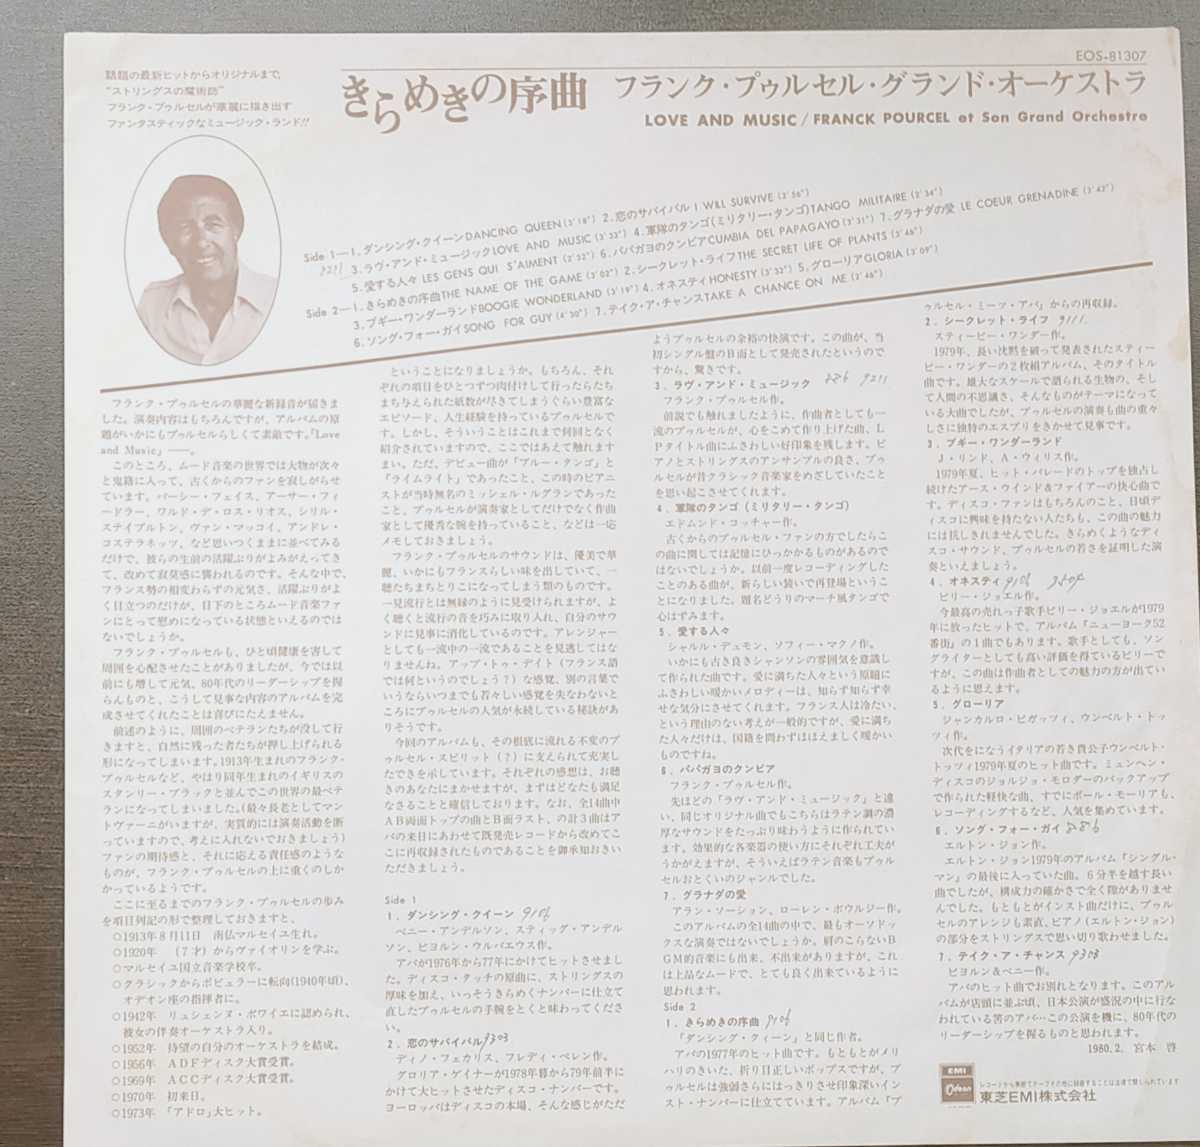 EOS-81307
話題の最新ヒットからオリジナルまで、
“ストリングスの魔術師”
フランク・プゥルセルが華麗に描き出す
ファンタスティックなミュージック・ランド!!
きらめきの序曲 フランク・プゥルセル・グランド・オーケストラ
LOVE AND MUSIC/FRANCK POURCEL et Son Grand Orchestre
Side 1—1. ダンシング・クイーンDANCING QUEEN(3'18") 2. 恋のサバイバル I WILL SURVIVE (2'56")
3. ラヴ・アンド・ミュージックLOVE AND MUSIC(3'33") 4. 軍隊のタンゴ(ミリタリー・タンゴ)TANGO MILITAIRE (2'34")
5. 愛する人々 LES GENS QUI S'AIMENT (2'52") 6. パパガヨのクンビアCUMBIA DEL PAPAGAYO(2'31") 7. グラナダの愛 LE COEUR GRENADINE (3'42")
Side 2—1. きらめきの序曲THE NAME OF THE GAME (3'02") 2. シークレット・ライフTHE SECRET LIFE OF PLANTS (3'46")
3. ブギー・ワンダーランドBOOGIE WONDERLAND (3'19") 4. オネスティHONESTY (3'52") 5. グローリアGLORIA (3'09")
6. ソング・フォー・ガイSONG FOR GUY(4'30") 7. テイク・ア・チャンスTAKE A CHANCE ON ME (3'46")
フランク・プゥルセルの華麗な新録音が届きま
した。演奏内容はもちろんですが、アルバムの原
題がいかにもプゥルセルらしくて素敵です。「Love
and Music」——。
このところ、ムード音楽の世界では大物が次々
と鬼籍に入って、古くからのファンを寂しがらせ
ています。パーシー・フェイス、アーサー・フィ
ードラー、ワルド・デ・ロス・リオス、シリル・
ステイプルトン、ヴァン・マッコイ、アンドレ・
コステラネッツ、など思いつくままに並べてみる
だけで、彼らの生前の活躍ぶりがよみがえってき
て、改めて寂寞感に襲われるのです。そんな中で、
フランス勢の相変わらずの元気さ、活躍ぶりがよ
く目立つのだけが、目下のところムード音楽ファ
ンにとって慰めになっている状態といえるのでは
ないでしょうか。
フランク・プゥルセルも、ひと頃健康を害して
周囲を心配させたことがありましたが、今では以
前にも増して元気、80年代のリーダーシップを握
らんものと、こうして見事な内容のアルバムを完
成させてくれたことは喜びにたえません。
前述のように、周囲のベテランたちが没して行
きますと、自然に残った者たちが押し上げられる
形になってしまいます。1913年生まれのフランク・
プゥルセルなど、やはり同年生まれのイギリスの
スタンリー・ブラックと並んでこの世界の最ベテ
ランになってしまいました。(最々長老としてマン
トヴァーニがいますが、実質的には演奏活動を断
っていますので、考えに入れないでおきましょう)
ファンの期待感と、それに応える責任感のような
ものが、フランク・プゥルセルの上に重くのしか
かっているようです。
ここに至るまでのフランク・プゥルセルの歩み
を項目列記の形で整理しておきますと、
○1913年8月11日 南仏マルセイユ生れ。
○1920年 (7才) からヴァイオリンを学ぶ。
○マルセイユ国立音楽学校卒。
○クラシックからポピュラーに転向(1940年頃)、
オデオン座の指揮者に。
○1942年 リュシェンヌ・ボワイエに認められ、
彼女の伴奏オーケストラ入り。
○1952年 待望の自分のオーケストラを結成。
○1956年 ADFディスク大賞受賞。
○1969年 ACCディスク大賞受賞。
○1970年 初来日。
○1973年 「アドロ」大ヒット。
ということになりましょうか。もちろん、それ
ぞれの項目をひとつずつ肉付けして行ったらたち
まち与えられた紙数が尽きてしまうぐらい豊富な
エピソード、人生経験を持っているプゥルセルで
す。しかし、そういうことはこれまで何回となく
紹介されていますので、ここではあえて触れます
まい。ただ、デビュー曲が「ブルー・タンゴ」と
「ライムライト」であったこと、この時のピアニ
ストが当時無名のミッシェル・ルグランであった
こと、プゥルセルが演奏家としてだけでなく作曲
家として優秀な腕を持っていること、などは一応
メモしておきましょう。
フランク・プゥルセルのサウンドは、優美で華
麗、いかにもフランスらしい味を出していて、一
聴たちまちとりこになってしまう類のものです。
一見流行とは無縁のように見受けられますが、よ
く聴くと流行の音を巧みに取り入れ、自分のサウ
ンドに見事に消化しているのです。アレンジャー
としても一流中の一流であることを見逃してはな
りませんね。アップ・トゥ・デイト(フランス語
では何というのでしょう?)な感覚、別の言葉で
いうならいつまでも若々しい感覚を失なわないと
ころにプゥルセルの人気が永続している秘訣があ
りそうです。
今回のアルバムも、その根底に流れる不変のプ
ゥルセル・スピリット(?)に支えられて充実し
たできを示しています。それぞれの感想は、お聴
きのあなたにまかせますが、まずはどなたも満足
なさることと確信しております。なお、全14曲中
AB両面トップの曲とB面ラスト、の計3曲はア
バの来日にあわせて既発売レコードから改めてこ
こに再収録されたものであることを御承知おきい
ただきましょう。
Side 1
1. ダンシング・クイーン 9106
ベニー・アンデルソン、スティッグ・アンデル
ソン、ビヨルン・ウルバエウス作。
アバが1976年から77年にかけてヒットさせまし
た。ディスコ・タッチの原曲に、ストリングスの
厚味を加え、いっそうきらめくナンバーに仕立て
直したプゥルセルの手腕をとくと味わってくださ
い。
2. 恋のサバイバル 9303
ディノ・フェカリス、フレディ・ペレン作。
グロリア・ゲイナーが1978年暮から79年前半に
かけて大ヒットさせたディスコ・ナンバーです。
ヨーロッパはディスコの本場、そんな感じがただ
ようプゥルセルの余裕の快演です。この曲が、当
初シングル盤のB面として発売されたというので
すから、驚きです。
3. ラヴ・アンド・ミュージック 886 9211
フランク・プゥルセル作。
前説でも触れましたように、作曲者としても一
流のプゥルセルが、心をこめて作り上げた曲、L
Pタイトル曲にふさわしい好印象を残します。ピ
アノとストリングスのアンサンブルの良さ、プゥ
ルセルが昔クラシック音楽家をめざしていたこと
を思い起こさせてくれます。
4. 軍隊のタンゴ (ミリタリー・タンゴ)
エドムンド・コッチャー作。
古くからのプゥルセル・ファンの方でしたらこ
の曲に関しては記憶にひっかかるものがあるので
はないでしょうか。以前一度レコーディングした
ことのある曲が、新らしい装いで再登場というこ
とになりました。題名どうりのマーチ風タンゴで
心はずみます。
5. 愛する人々
シャルル・デュモン、ソフィー・マクノ作。
いかにも古き良きシャンソンの雰囲気を意識し
て作られた曲です。愛に満ちた人々という原題に
ふさわしい暖かいメロディーは、知らず知らず幸
せな気分にさせてくれます。フランス人は冷たい、
という理由のない考えが一般的ですが、愛に満ち
た人々だけは、国籍を問わずほほえましく暖かい
ものですね。
6. パパガヨのクンビア
フランク・プゥルセル作。
先ほどの「ラヴ・アンド・ミュージック」と違
い、同じオリジナル曲でもこちらはラテン調の濃
厚なサウンドをたっぷり味わうように作られてい
ます。効果的な各楽器の使い方にそれぞれ工夫が
うかがえますが、そういえばラテン音楽もプゥル
セルおとくいのジャンルでした。
7. グラナダの愛
アラン・ソーション、ローレン・ボウルジー作。
このアルバムの全14曲の中で、最もオーソドッ
クスな演奏ではないでしょうか。肩のこらないB
GM的音楽にも出来、不出来がありますが、これ
は上品なムードで、とても良く出来ているように
思われます。
Side 2
1. きらめきの序曲 9106
「ダンシング・クィーン」と同じ作者。
アバの1977年のヒット曲です。もともとがメリ
ハリのきいた、折り目正しいポップスですが、プ
ゥルセルは強弱さらにはっきりさせ印象深いイン
スト・ナンバーに仕立てています。アルバム「プ
ゥルセル・ミーツ・アバ」からの再収録。
2. シークレット・ライフ 9111.
スティービー・ワンダー作。
1979年、長い沈黙を破って発表されたスティー
ビー・ワンダーの2枚組アルバム、そのタイトル
曲です。雄大なスケールで語られる生物の、そし
て人間の不思議さ、そんなものがテーマになって
いる大曲でしたが、プゥルセルの演奏も曲の重々
しさに独特のエスプリをきかせて見事です。
3. ブギー・ワンダーランド
J・リンド、A・ウィリス作。
1979年夏、ヒット・パレードのトップを独占し
続けたアース・ウインド&ファイアーの快心曲で
す。ディスコ・ファンはもちろんのこと、日頃デ
ィスコに興味を持たない人たちも、この曲の魅力
には抗しきれませんでした。きらめくようなディ
スコ・サウンド、プゥルセルの若さを証明した演
奏といえましょう。
4. オネスティ 9106 9504
ビリー・ジョエル作。
今最高の売れっ子歌手ビリー・ジョエルが1979
年に放ったヒットで、アルバム「ニューヨーク52
番街」の1曲でもあります。歌手としても、ソン
グライターとしても高い評価を得ているビリーで
すが、この曲は作曲者としての魅力の方が出てい
るように思えます。
5. グローリア
ジャンカルロ・ビガッツィ、ウンベルト・トッ
ツィ作。
次代をになうイタリアの若き貴公子ウンベルト・
トッツィ1979年夏のヒット曲です。ミュンヘン・
ディスコのジョルジョ・モロダーのバックアップ
で作られた軽快な曲、すでにポール・モーリアも、
レコーディングするなど、人気を集めています。
6. ソング・フォー・ガイ 886
エルトン・ジョン作。
エルトン・ジョン1979年のアルバム「シングル・
マン」の最後に入っていた曲。6分半を越す長い
曲でしたが、構成力の確かさで全く隙がありませ
んでした。もともとがインスト曲だけに、プゥル
セルのアレンジも素直、ピアノ(エルトン・ジョン)
の部分をストリングスで思い切り歌わせました。
7. テイク・ア・チャンス 9303
ビヨルン&ベニー作。
アバのヒット曲でお別れとなります。このアル
バムが店頭に並ぶ頃、日本公演が盛況の中に行な
われている筈のアバ…この公演を機に、80年代の
リーダーシップを握るものと思われます。
1980.2. 宮本 啓
EMI
Odeon
レコードから無断でテープその他に録音することは法律で禁じられています
東芝EMI株式会社